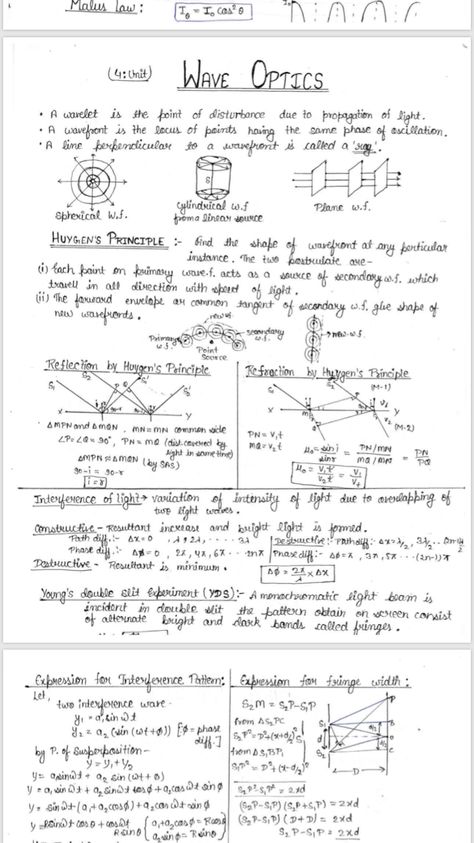 Malus Law : I_θ = I_o cos²θ
(4: Unit) WAVE OPTICS
• A wavelet is the point of disturbance due to propagation of light.
• A wavefront is the locus of points having the same phase of oscillation.
• A line perpendicular to a wavefront is called a 'ray'.
S
Spherical w.f.
Cylindrical w.f from a linear source
Plane w.f.
HUYGEN'S PRINCIPLE :- find the shape of wavefront at any perticular
instance. The two postrulate are-
(i) Each point on primary wave.f. acts as a source of secondary w.f. which
travell in all direction with speed of light.
(ii) The forward envelope or common tangent of secondary w.f. give shape of
new wavefronds.
new wf.
Primary w.f.
secondary w.f.
Point Source
new w.f.
Reflection by Huygen's Principle
X Y
• ΔMPN and ΔMQN, MN = MN common side
∠P = ∠Q = 90°, PN = MQ (dist. covered by light in same time)
ΔMPN ≅ ΔMQN (by SAS)
90-i = 90-r
i = r
Refraction by Huygen's Principle
(M-1)
X Y
(M-2)
PN = V₁t
MQ = V₂t
μ₀ = sin i / sin r = PN/MN / MQ/MN = PN / PQ
μ₀ = V₁t / V₂t = V₁ / V₂
Interference of light → variation of intensity of light due to overlapping of
two light waves.
Constructive - Resultant increase and bright light is formed.
Path diff.:- Δx = 0, λ, 2λ, ...
Phase diff.:- Δϕ = 0, 2π, 4π, 6π ... 2nπ
Destructive - Resultant is minimum.
Destructive :- Path diff:- Δx = λ/2, 3λ/2 ..
Phase diff:- Δϕ = π, 3π, 5π ... (2n-1)π
Δϕ = 2π/λ × Δx
Young's double slit Experiment (YDS):- A monochromatic light beam is
incident in double slit the pattern obtain on screen consist
of alternate bright and dark bands called fringes.
Expression for Interference Pattern:
Let,
two interference wave-
y₁ = a₁ sin ωt
y₂ = a₂ sin (ωt + ϕ) [ϕ = phase diff.]
by P. of Susperposition-
y = y₁ + y₂
y = a₁ sin ωt + a₂ sin (ωt + ϕ)
y = a₁ sin ωt + a₂ sin ωt cos ϕ + a₂ cos ωt sin ϕ
y = sin ωt (a₁ + a₂ cos ϕ) + a₂ cos ωt sin ϕ
y = R sin ωt cos θ + cos ωt R sin θ
{ a₁ + a₂ cos ϕ = R cos θ
a₂ sin ϕ = R sin θ }
Expression for fringe width :
S₂M = S₂P - S₁P
from ΔS₂PC
S₂P² = D² + (x + d/2)²
from ΔS₁BP,
S₁P² = D² + (x - d/2)²
S₂P² - S₁P² = 2xd
(S₂P - S₁P) (S₂P + S₁P) = 2xd
(S₂P - S₁P) (D + D) = 2xd
S₂P - S₁P = 2xd
P
S₁
B
d
O
S₂
C
D